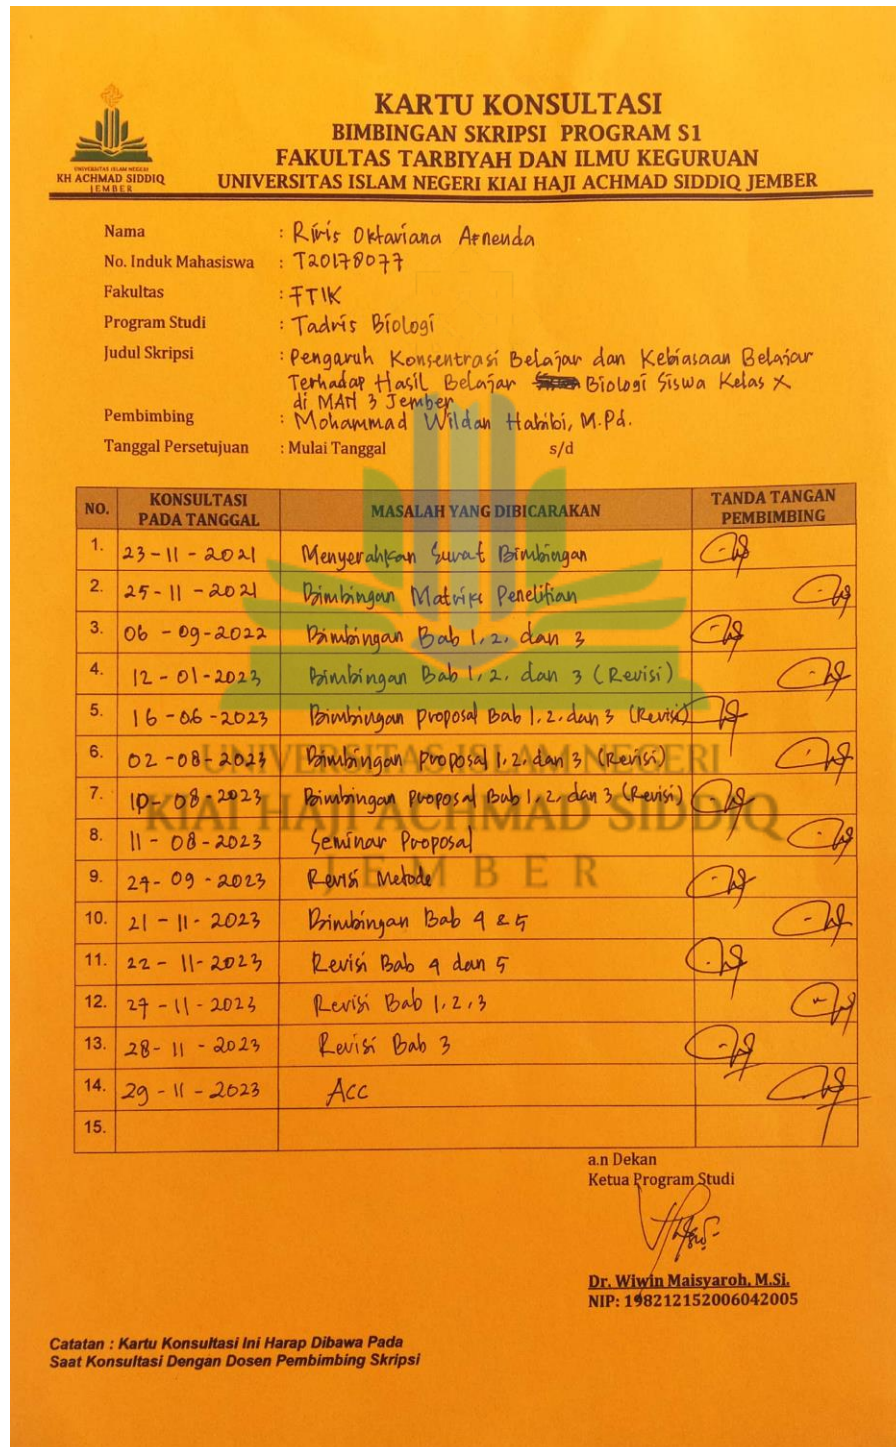 KARTU KONSULTASI
BIMBINGAN SKRIPSI PROGRAM S1
FAKULTAS TARBIYAH DAN ILMU KEGURUAN
UNIVERSITAS ISLAM NEGERI KIAI HAJI ACHMAD SIDDIQ JEMBER
UNIVERSITAS ISLAM NEGERI
KH ACHMAD SIDDIQ
JEMBER
Nama : Riris Oktaviana Arnenda
No. Induk Mahasiswa : T20178077
Fakultas : FTIK
Program Studi : Tadris Biologi
Judul Skripsi : Pengaruh Konsentrasi Belajar dan Kebiasaan Belajar
Terhadap Hasil Belajar Biologi Siswa Kelas X
di MAN 3 Jember
Pembimbing : Mohammad Wildan Habibi, M.Pd.
Tanggal Persetujuan : Mulai Tanggal s/d
NO. KONSULTASI PADA TANGGAL MASALAH YANG DIBICARAKAN TANDA TANGAN PEMBIMBING
1. 23-11-2021 Menyerahkan Surat Bimbingan
2. 25-11-2021 Bimbingan Matriks Penelitian
3. 06-09-2022 Bimbingan Bab 1, 2, dan 3
4. 12-01-2023 Bimbingan Bab 1, 2, dan 3 (Revisi)
5. 16-06-2023 Bimbingan proposal Bab 1, 2, dan 3 (Revisi)
6. 02-08-2023 Bimbingan proposal 1, 2, dan 3 (Revisi)
7. 10-08-2023 Bimbingan proposal Bab 1, 2, dan 3 (Revisi)
8. 11-08-2023 Seminar Proposal
9. 24-09-2023 Revisi Metode
10. 21-11-2023 Bimbingan Bab 4 & 5
11. 22-11-2023 Revisi Bab 4 dan 5
12. 27-11-2023 Revisi Bab 1, 2, 3
13. 28-11-2023 Revisi Bab 3
14. 29-11-2023 Acc
15.
UNIVERSITAS ISLAM NEGERI
KIAI HAJI ACHMAD SIDDIQ
JEMBER
a.n Dekan
Ketua Program Studi
Dr. Wiwin Maisyaroh, M.Si.
NIP: 198212152006042005
Catatan : Kartu Konsultasi Ini Harap Dibawa Pada
Saat Konsultasi Dengan Dosen Pembimbing Skripsi